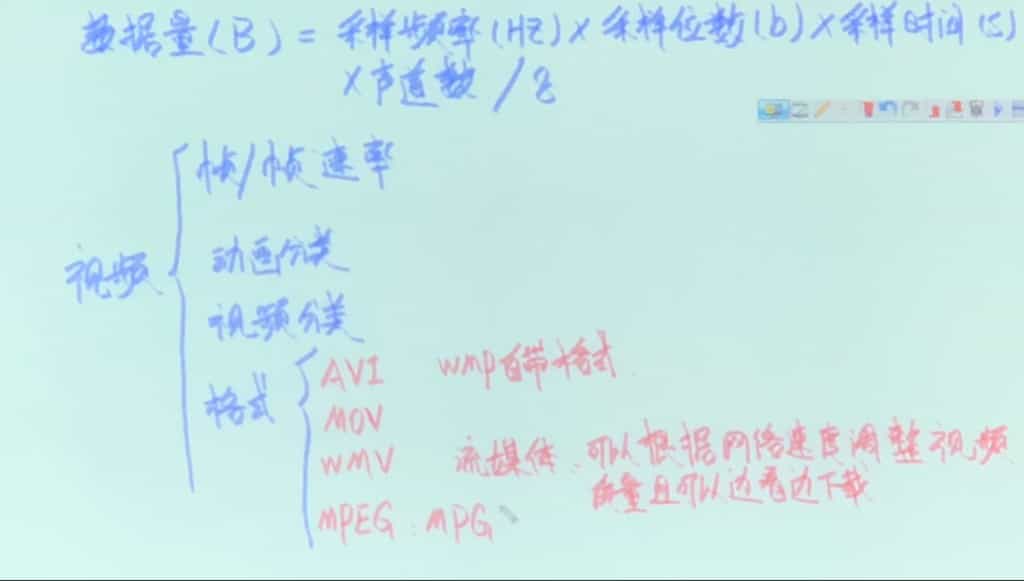 数据量(B) = 采样频率(HZ)×采样位数(b)×采样时间(S)
×声道数/8
视频
帧/帧速率
动画分类
视频分类
格式
AVI wmp自带格式.
MOV
WMV 流媒体、可以根据网络速度调整视频
质量且可以边看边下载
MPEG、MPG